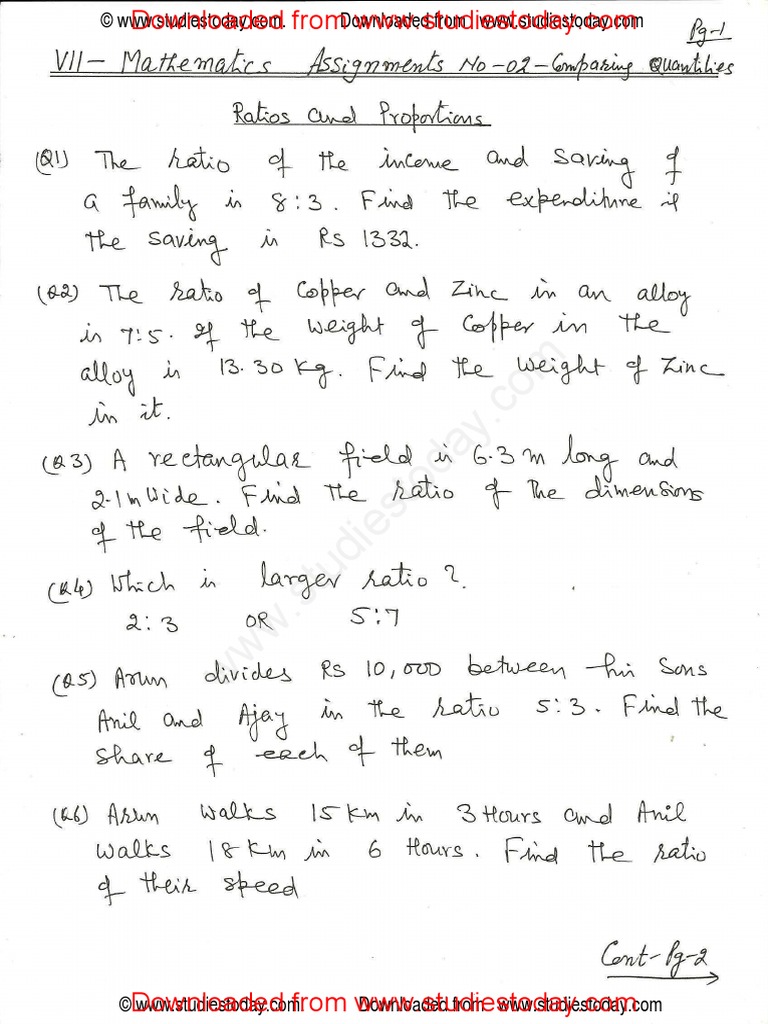 © www.studiestoday.com. Downloaded from www.studiestoday.com
Downloaded from www.studiestoday.com
Pg-1
VII- Mathematics Assignments No-02-Comparing Quantities
Ratios and Proportions
(Q1) The ratio of the income and saving of
a family is 8:3. Find the expenditure if
the saving is Rs 1332.
(Q2) The ratio of Copper and Zinc in an alloy
is 7:5. If the weight of Copper in the
alloy is 13.30 Kg. Find the weight of Zinc
in it.
(Q3) A rectangular field is 6.3 m long and
2.1m wide. Find the ratio of the dimensions
of the field.
(Q4) Which is larger ratio?
2:3 OR 5:7
(Q5) Arun divides Rs 10,000 between his Sons
Anil and Ajay in the ratio 5:3. Find the
share of each of them
(Q6) Arun walks 15 Km in 3 Hours and Anil
walks 18 Km in 6 Hours. Find the ratio
of their speed
Cont-Pg-2
www.studiestoday.com
© www.studiestoday.com. Downloaded from www.studiestoday.com
Downloaded from www.studiestoday.com